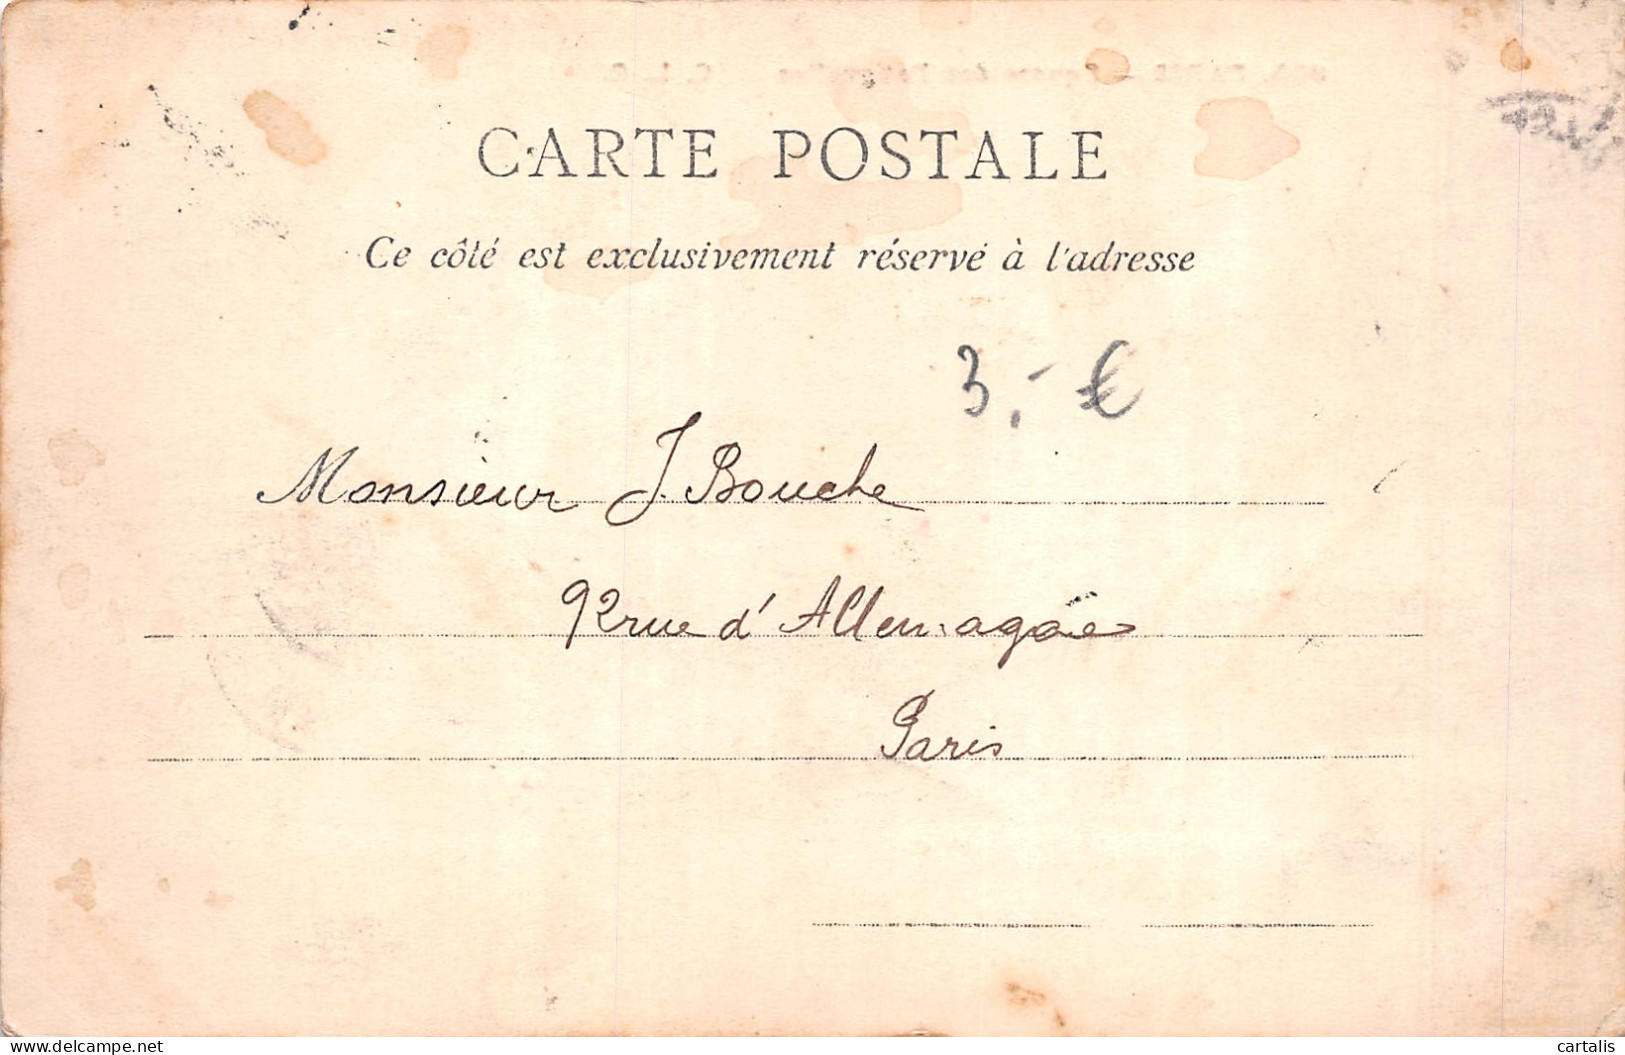 CARTE POSTALE
Ce côté est exclusivement réservé à l'adresse
3,- €
Monsieur J. Bouche
92 rue d'Allemagne
Paris
delcampe.net
cartalis